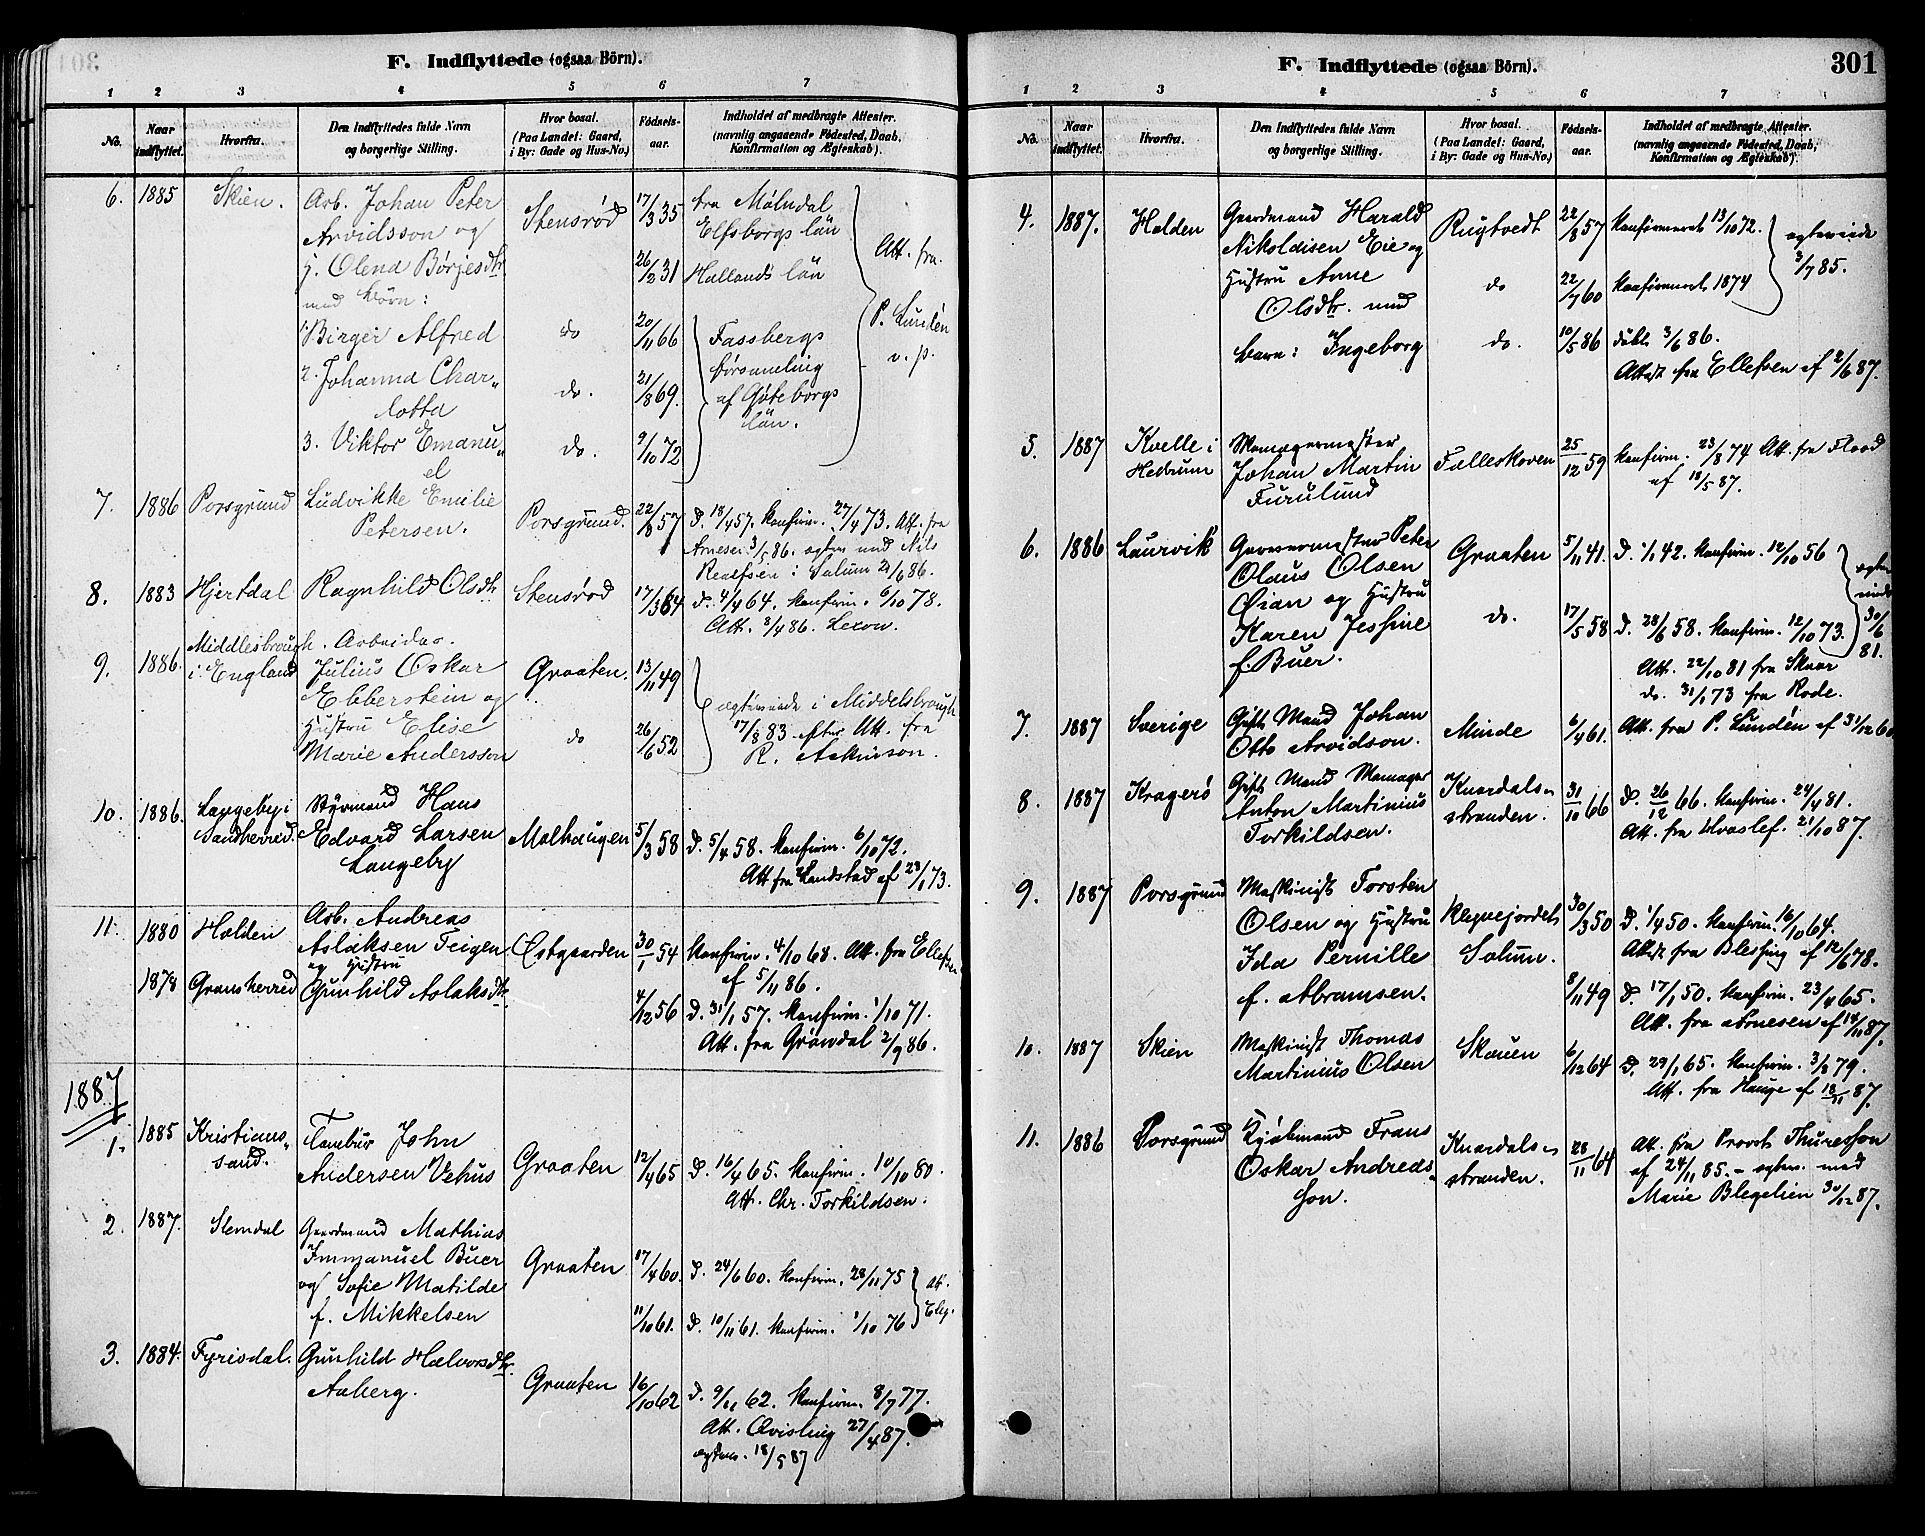 F. Indflyttede (ogsaa Börn).
1 2 3 4 5 6 7
No. Naar indflyttet. Hvorfra. Den Indflyttedes fulde Navn og borgerlige Stilling. Hvor bosat. (Paa Landet: Gaard, i By: Gade og Hus-No.) Fødsels-aar. Indholdet af medbragte Attester. (navnlig angaaende Fødested, Daab, Konfirmation og Ægteskab).
6. 1885 Skien. Arb. Johan Peter Stensrød 17/3 35 fra Mölndal
Arvidsson og Elfsborgs län Att. fra
j. Olena Børjesdtr 26/2 31 Hallands län P. Lundén
med Børn: v. p.
1. Birger Alfred do 20/11 66 Fassbergs
2. Johanna Char„ do. 21/8 69. församling
lotta af Göteborgs
3. Viktor Emanu„ do. 9/10 72 län.
el
7. 1886 Porsgrund Ludvikke Emilie Porsgrund. 22/8 57 D. 18/4 57. Konfirm. 27/4 73. Att. fra
Petersen. Arnesen 3/5 86. egtev. med Nils
Realfsen i Solum 21/6 86.
8. 1883 Hjertdal Ragnhild Olsdtr Stensrød 17/3 64 D. 4/4 64. Konfirm. 6/10 78.
Att. 3/4 86. Lexow.
9. 1886. Middlesbrough Arbeider.
i England Julius Oskar Graaten. 13/11 49
Ebberstein og egteviede i Middelsbrough
Hustru Elise do 26/6 52 17/8 83 efter Att. fra
Marie Andersson R. Atkinson.
10. 1886. Langeby i Styrmand Hans
Sandherred. Edvard Larsen Molhaugen 5/3 58 D. 5/4 58. Konfirm. 6/10 72.
Langeby Att fra Landstad af 23/1 73.
11. 1880 Holden Arb. Andreas
Aslaksen Teigen Østgaarden 30/1 54 Konfirm. 4/10 68. Att. fra Ellefsen
og Hustru af 5/11 86.
1878 Gransherred Gunhild Aslaksdtr. 4/12 56 D. 31/1 57. Konfirm. 1/10 71.
Att. fra Gröndal 2/9 86.
1887
1. 1885 Kristians„ Tambur John
sand. Andersen Vehus Graaten 12/4 65 D. 16/4 65. Konfirm. 10/10 80.
Att. Chr. Torkildsen.
2. 1887. Slemdal Gaardmand Mathias
Immanuel Buer Graaten 17/4 60. D. 24/6 60. Konfirm. 28/11 75 Att.
og Sofie Matilde
f. Mikkelsen 11/10 61. D. 10/11 61. Konfirm. 1/10 76
3. 1884. Fyrisdal. Gunhild Halvorsdtr.
Aaberg. Graaten 16/10 62 D. 9/11 62. Konfirm. 8/7 77.
Att. Qvisling 27/4 87.
egtev. 18/5 87
F. Indflyttede (ogsaa Börn). 301
1 2 3 4 5 6 7
No. Naar indflyttet. Hvorfra. Den Indflyttedes fulde Navn og borgerlige Stilling. Hvor bosat. (Paa Landet: Gaard, i By: Gade og Hus-No.) Fødsels-aar. Indholdet af medbragte Attester. (navnlig angaaende Fødested, Daab, Konfirmation og Ægteskab).
4. 1887. Holden Gaardmand Harald Rugtvedt 22/8 57 Konfirmeret 13/10 72. egteviede
Nikolaisen Eie og 3/7 85.
Hustru Anne do 22/7 60 Konfirmeret 1874
Olsdtr. med
barn: Ingeborg do. 10/5 86 döbt 3/6 86.
Attest fra Ellefsen af 2/6 87.
5. 1887 Kvelle i
Hedrum Johan Martin Fælleskoven 25/12 59 Konfirm. 23/8 74 Att. fra Flood
Furulund af 18/5 87.
6. 1886 Laurvik Garvermester Peter Graaten 5/11 41. D. 1/1 42. Konfirm. 12/10 56
Olaus Olsen egte
Øian og Hustru viede
Karen Jessine do. 17/5 58 D. 28/6 58. Konfirm. 12/10 73. 30/6
f. Buer. 81.
Att. 22/10 81 fra Skaar
do. 31/1 73 fra Rode.
7. 1887 Sverige Gift Mand Johan Minde 6/4 61. Att. fra P. Lundén af 31/12 60
Otto Arvidson.
8. 1887 Kragerø Gift Mand Knardals„ 31/10 66 D. 26/12 66. Konfirm. 24/4 81.
Anton Martinius stranden. Att. fra Hvoslef. 21/10 87.
Torkildsen.
9. 1887 Porsgrund Maskinist Torsten
Olsen og Hustru Klevejordet 30/3 50 D. 1/4 50. Konfirm. 16/10 64.
Ida Pernille Solum. Attest fra Blessing af 12/6 78.
f. Abramsen. 8/11 49 D. 17/1 50. Konfirm. 23/4 65.
Att. fra Arnesen af 14/11 87.
10. 1887 Skien Maskinist Thomas Skauen 6/12 64 D. 29/1 65. Konfirm. 3/8 79.
Martinius Olsen Att. fra Hauge af 18/11 87.
11. 1886 Porsgrund Kjøbmand Frans Knardals„ 28/11 64 Att. fra Provst Thuresson
Oskar Andreas„ stranden. af 24/11 85. – egtev. med
son. Marie Blegelien 30/12 87.